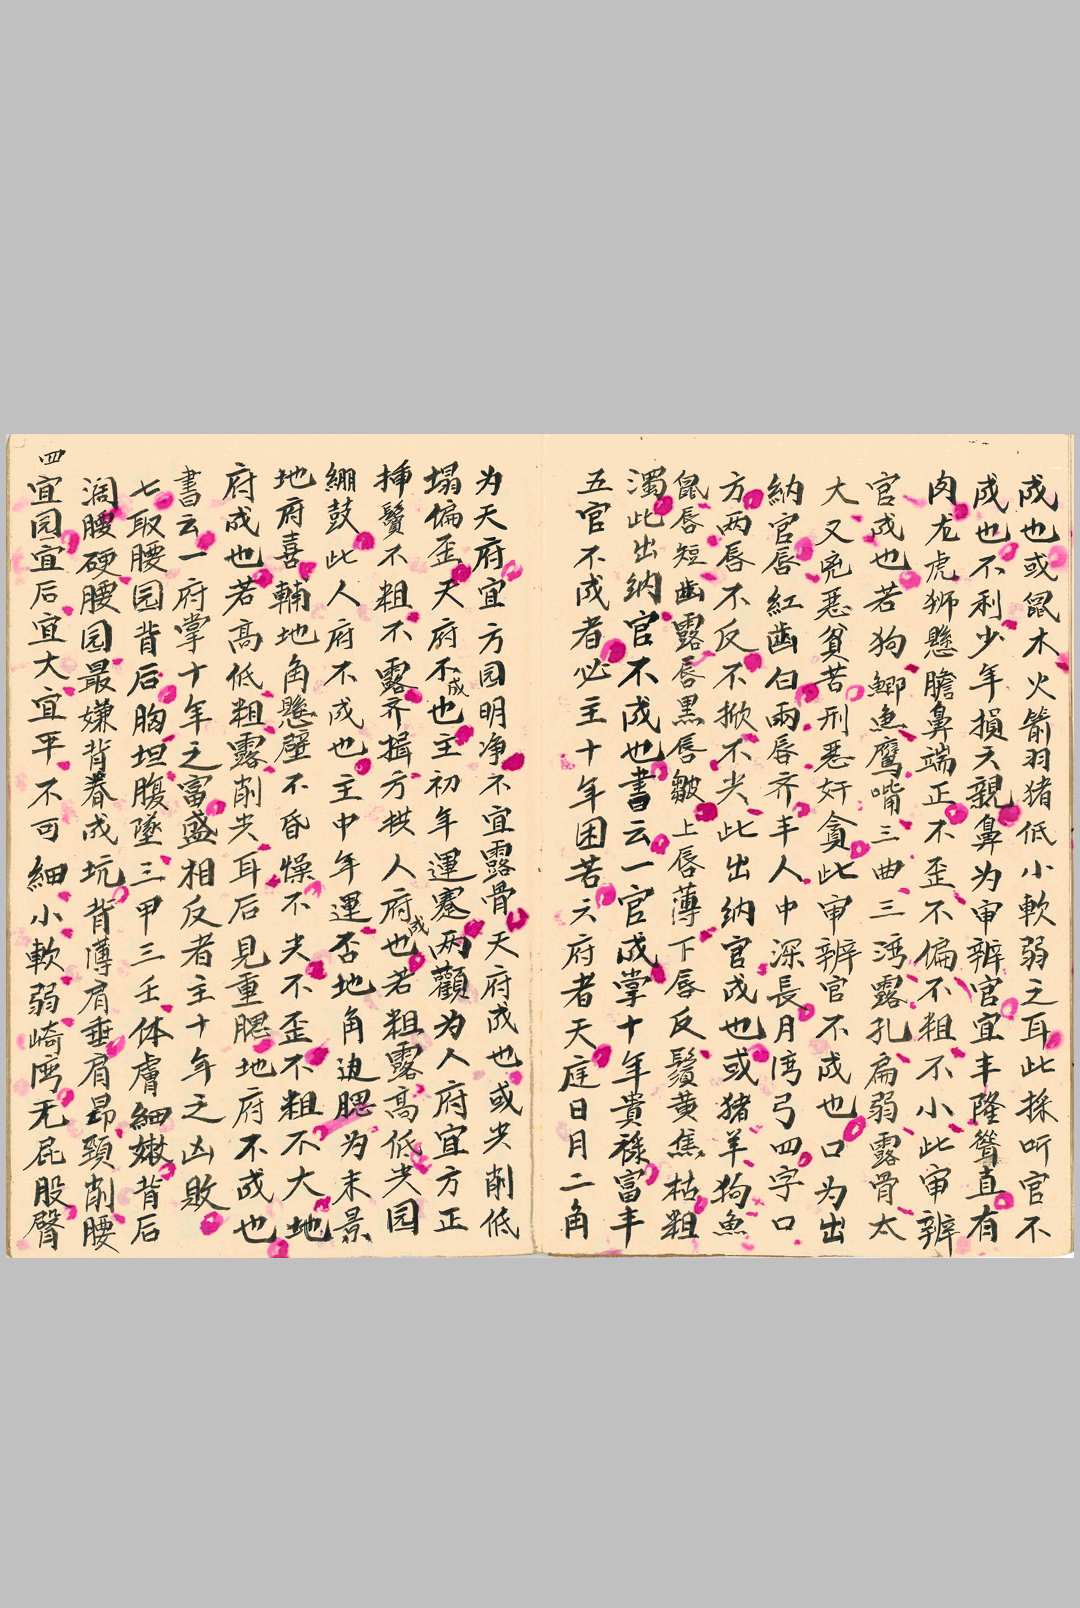 成也或鼠木火箭羽猪低小軟弱之耳此採听官不
成也不利少年損六親鼻为审辨官宜丰隆聳直有
肉龙虎狮懸膽鼻端正不歪不偏不粗不小此审辨
官成也若狗鯽魚鷹嘴三曲三湾露孔扁弱露骨太
大又兇惡貧苦刑惡奸貪此审辨官不成也口为出
納官唇紅齒白兩唇齐丰人中深長月湾弓四字口
方两唇不反不掀不尖此出納官成也或猪羊狗魚
鼠唇短齒露唇黑唇皺上唇薄下唇反鬚黄焦枯粗
濁此出納官不成也書云一官成掌十年貴祿富丰
五官不成者必主十年困苦六府者天庭日月二角
为天府宜方园明净不宜露骨天府成也或尖削低
塌偏歪天府不成也主初年運蹇两顴为人府宜方正
挿鬢不粗不露齐揖方拱人府成也若粗露高低尖园
綳鼓此人府不成也主中年運否地角边腮为末景
地府喜輔地角懸壁不昏燥不尖不歪不粗不大地
府成也若高低粗露削尖耳后見重腮地府不成也
書云一府掌十年之富盛相反者主十年之凶敗
七取腰园背后胸坦腹墜三甲三壬体膚細嫩背后
濶腰硬腰园最嫌背眷成坑背薄肩垂肩昂頸削腰
四
宜园宜后宜大宜平不可細小軟弱崎湾无屁股臀